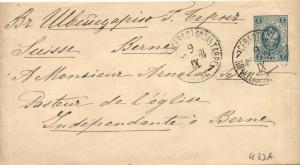 Въ Швейцарiю Г. Бернъ
Suisse Berne
A Monsieur Arnold
Pasteur de l'église
Indépendante à Berne
9
IX
7
7
433A